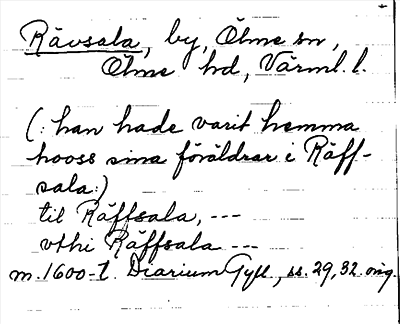 Rävsala, by, Ölme sn,
Ölme hd, Värml. l.
(: han hade varit hemma
hooss sina föräldrar i Räff-
sala:)
til Räffsala, ---
vthi Räffsala ---
m. 1600-t. Diarium Gyll., ss. 29, 32. orig.